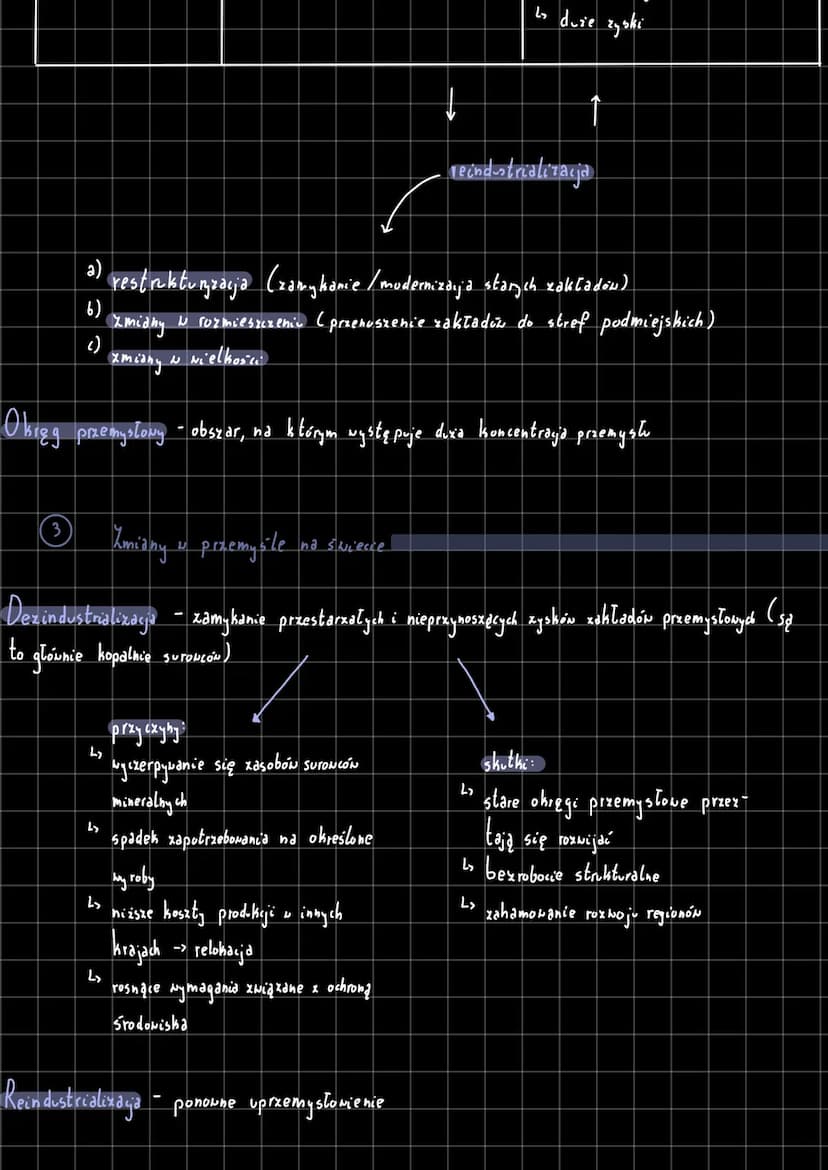 ↳ duże zyski
reindustrializacja
a) restrukturyzacja (zamykanie/modernizacja starych zakładów)
b) zmiany w rozmieszczeniu (przenoszenie zakładów do stref podmiejskich)
c) zmiany w wielkości
Okręg przemysłowy - obszar, na którym występuje duża koncentracja przemysłu
3 Zmiany w przemyśle na świecie
Dezindustrializacja - zamykanie przestarzałych i nieprzynoszących zysków zakładów przemysłowych (są
to głównie kopalnie surowców)
przyczyny:
↳ wyczerpywanie się zasobów surowców
mineralnych
↳ spadek zapotrzebowania na określone
wyroby
↳ niższe koszty produkcji w innych
krajach -> relokacja
↳ rosnące wymagania związane z ochroną
środowiska
skutki:
↳ stare okręgi przemysłowe przes-
tają się rozwijać
↳ bezrobocie strukturalne
↳ zahamowanie rozwoju regionów
Reindustrializacja - ponowne uprzemysłowienie